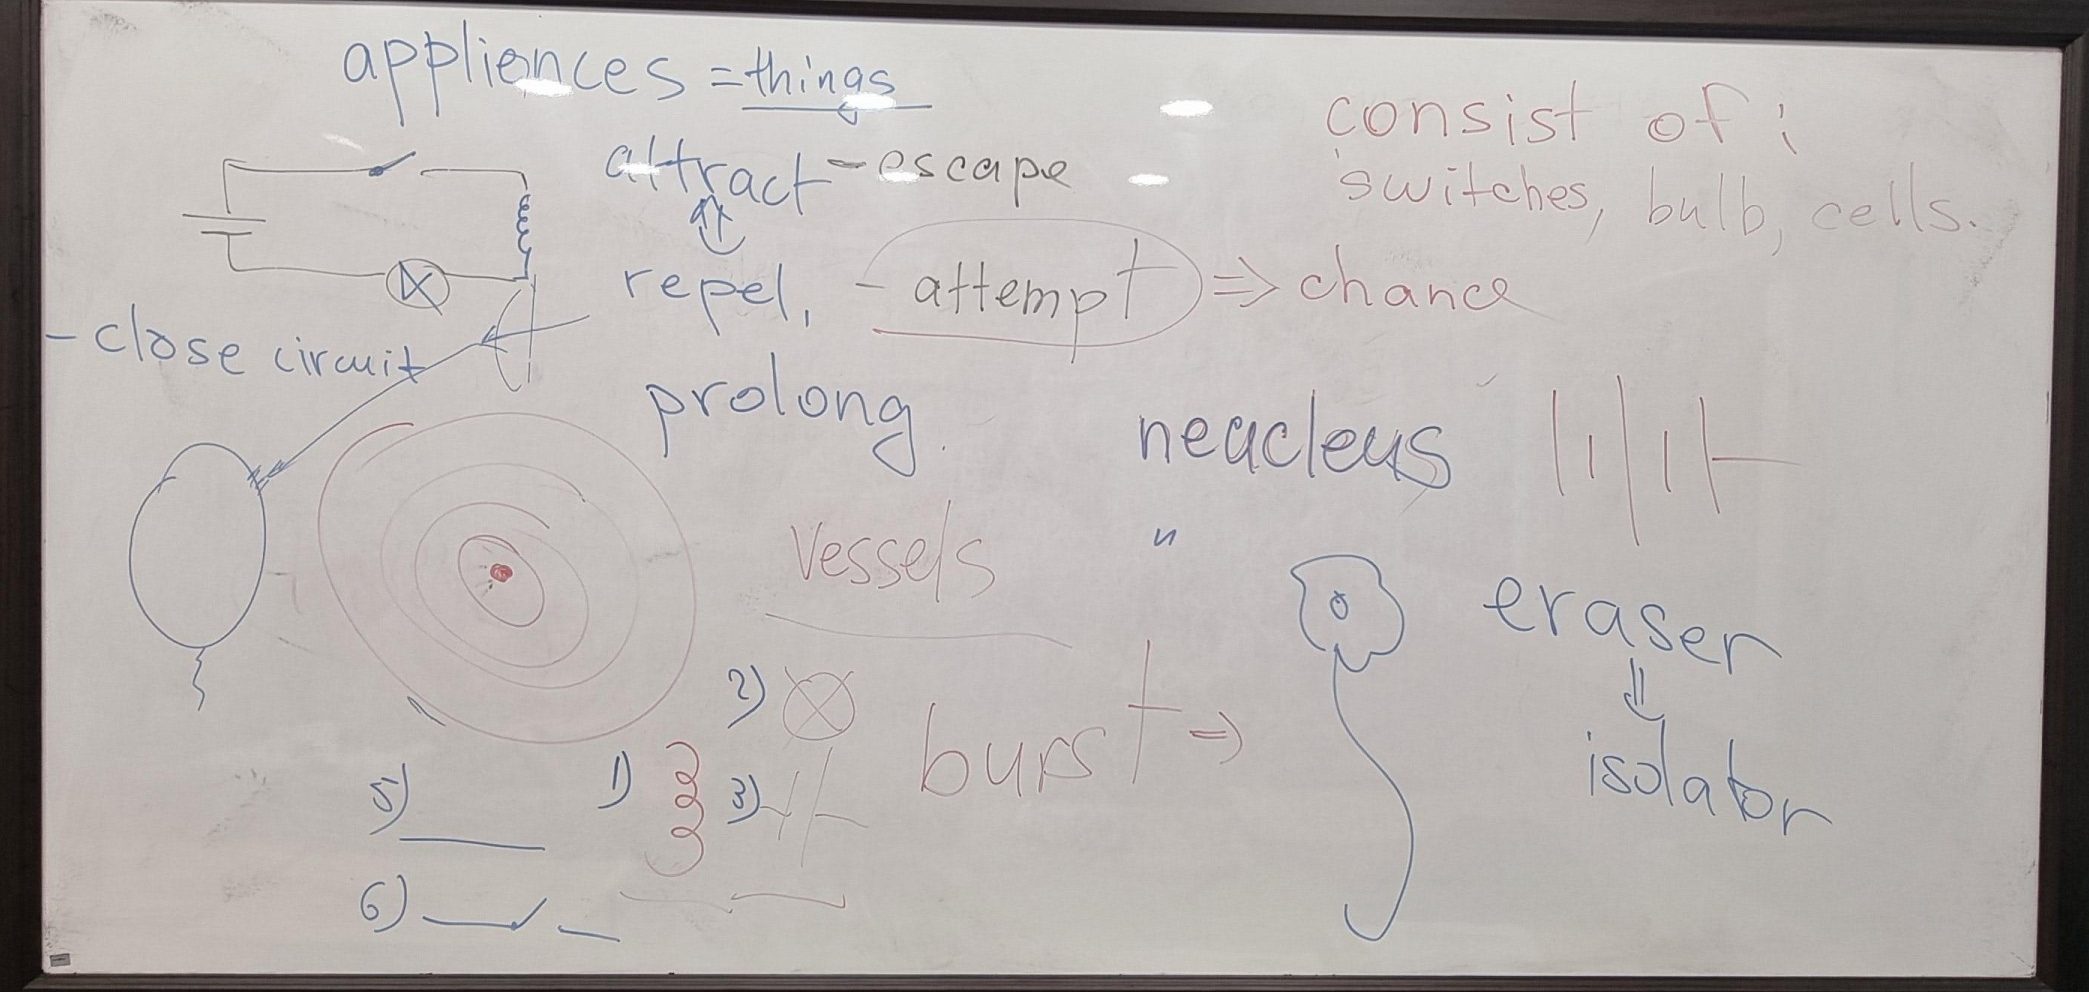 appliances = things
attract - escape
consist of :
switches, bulb, cells.
repel, - attempt ⇒ chance
- close circuit
prolong.
neacleus
vessels
"
eraser
⇓
isolator
2)
burst ⇒
1)
3)
5)
6)